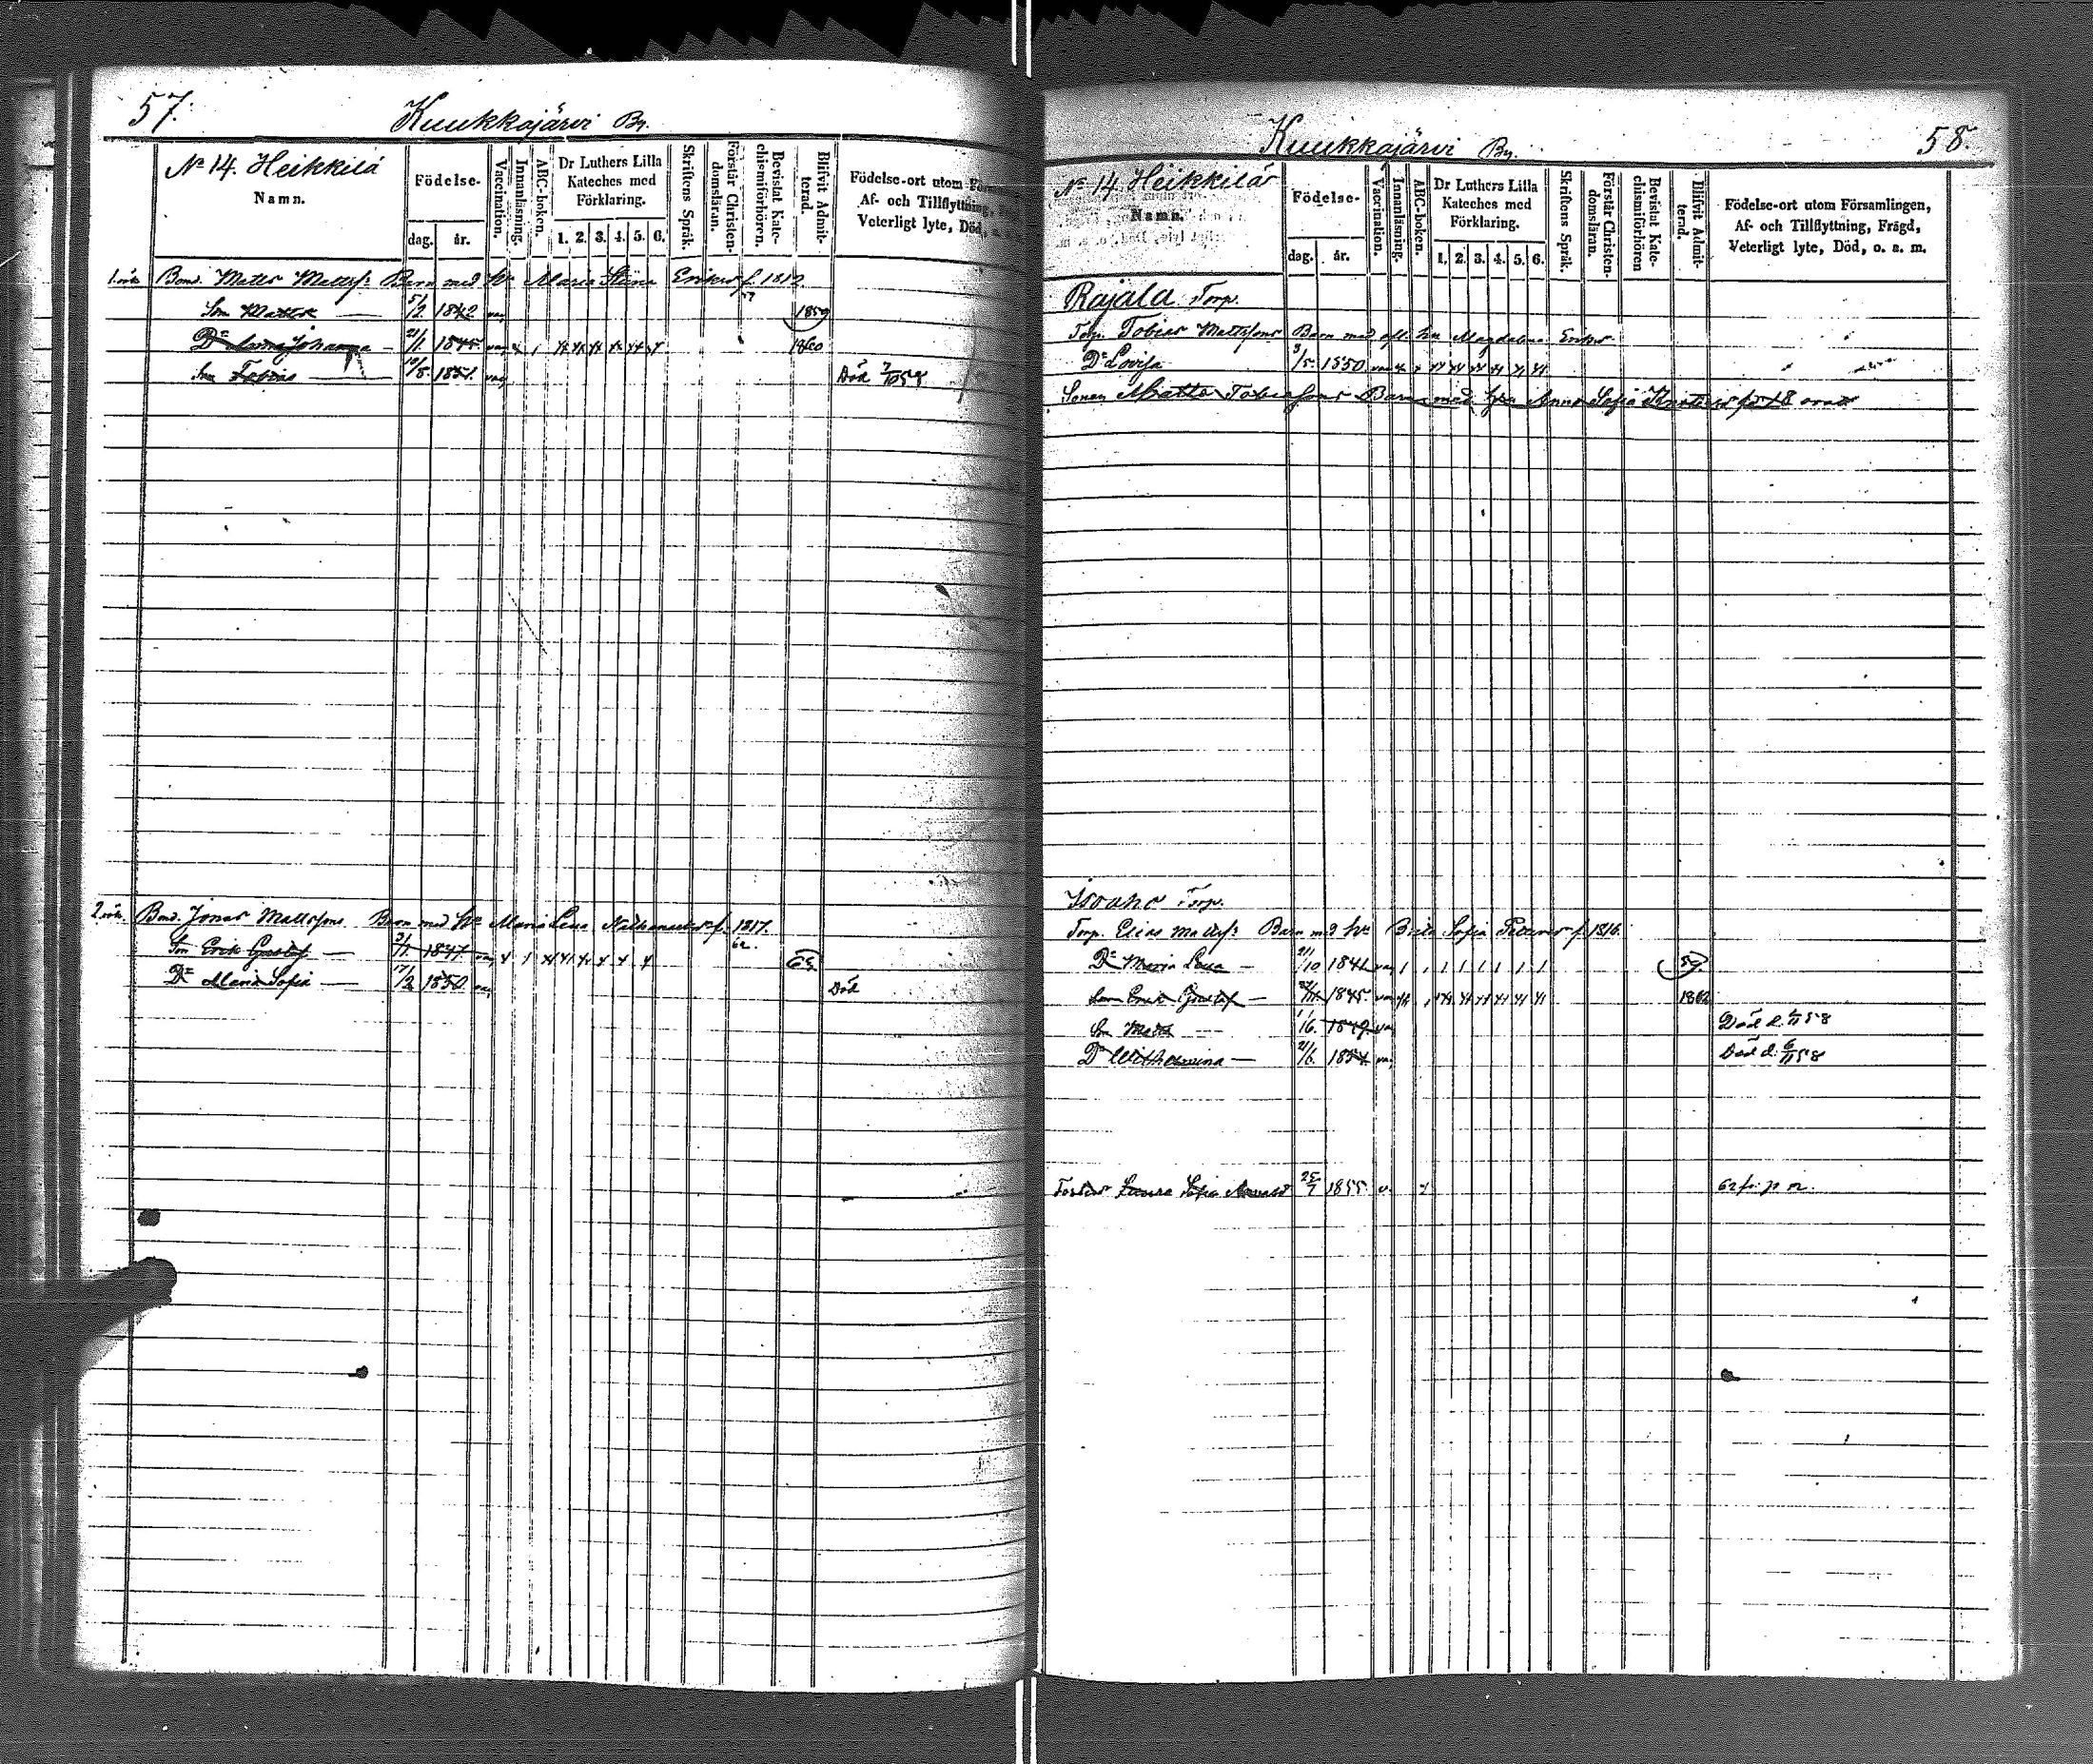 57.
Kuukkajärvi By.
No 14. Heikkilä
Namn.
Födelse-
dag. år.
Vaccination.
Innanläsning.
ABC-boken.
Dr Luthers Lilla
Kateches med
Förklaring.
1. 2. 3. 4. 5. 6.
Skriftens Språk.
Förstår Christen-
domsläran.
Bevistat Kate-
chismiförhören.
Blifvit Admit-
terad.
Födelse-ort utom
Af- och Tillflyttning,
Veterligt lyte, Död,
Bond. Matts Mattss: Barn med hu Maria Stina Eriksd f. 1812
Son Matts 5/2 1842 vac 1859
Dr Johanna 21/1 1845 vac 1860
Son Tobias 10/5 1851 vac Död
Bond. Jonas Mattssons Barn med hu Maria Lena f. 1817.
Son Erik Gustaf 1847 vac 62.
Dr Maria Sofia 17/2 1850 vac Död
Kuukkajärvi By.
58.
No 14 Heikkilä
Namn.
Födelse-
dag. år.
Vaccination.
Innanläsning.
ABC-boken.
Dr Luthers Lilla
Kateches med
Förklaring.
1. 2. 3. 4. 5. 6.
Skriftens Språk.
Förstår Christen-
domsläran.
Bevistat Kate-
chismiförhören
Blifvit Admit-
terad.
Födelse-ort utom Församlingen,
Af- och Tillflyttning, Frägd,
Veterligt lyte, Död, o. a. m.
Rajala Torp.
Torp. Tobias Mattssons Barn med afl. hu Magdalena Eriksd.
Dr Lovisa 3/5. 1850 vac
Sonen Matts Tobiassons Barn med hu Anna Sofia
Isoaho Torp.
Torp. Elias Mattss: Barn med hu Brita Sofia f. 1816
Dr Maria Lena 21/10 1841 vac 59.
Son Erik Gustaf 1845. vac 1862
Son Matts 1/6. 1849 vac Död d. 58
Dr Wilhelmina 21/6. 1854 vac Död d. 6/11 58
Sofia 25/7 1855. v.